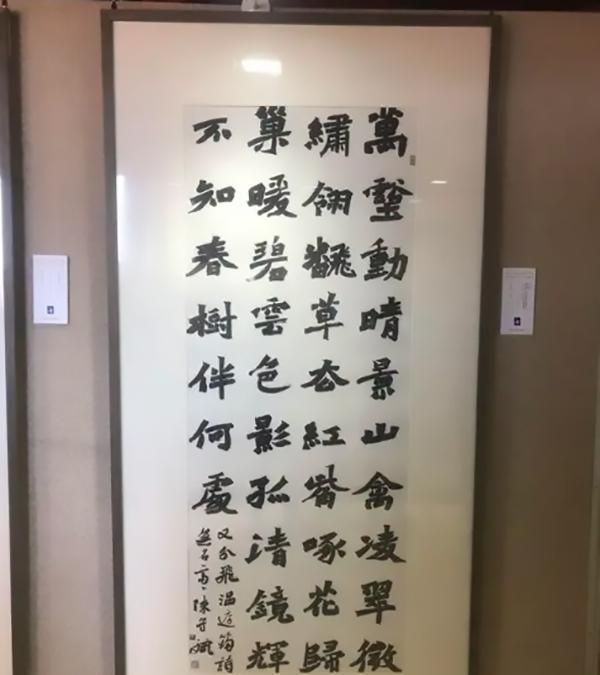 萬壑動晴景山禽凌翠微
繡翎飜草去紅觜啄花歸
巢暖碧雲色影孤清鏡輝
不知春樹伴何處
又分飛溫庭筠詩
陳守